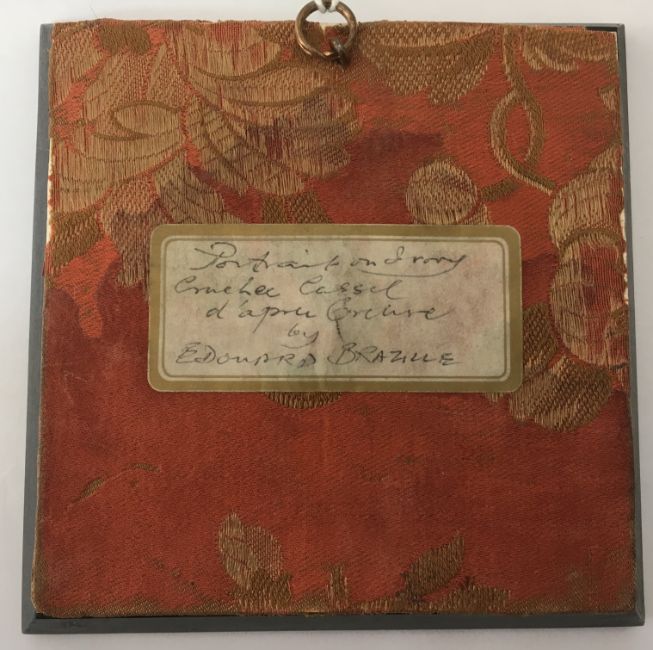 Portrait on Ivory
Cruchée Cassée
d'après Greuze
by
EDOUARD BRAZILLE